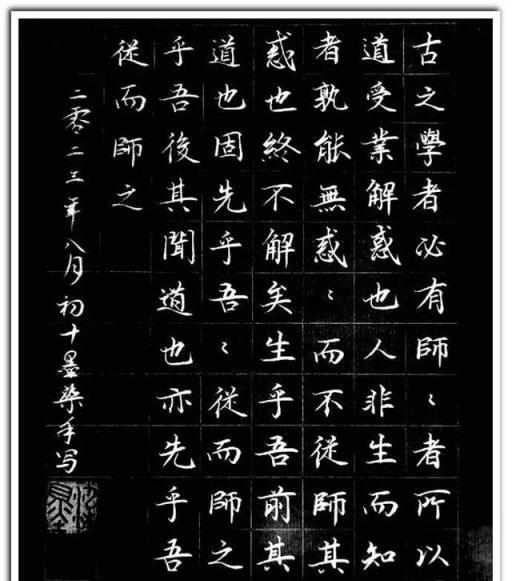 古之學者必有師〻者所以
道受業解惑也人非生而知
者孰能無惑〻而不從師其
惑也終不解矣生乎吾前其
道也固先乎吾〻從而師之
乎吾後其聞道也亦先乎吾
從而師之
二零二三年八月初十墨染手写